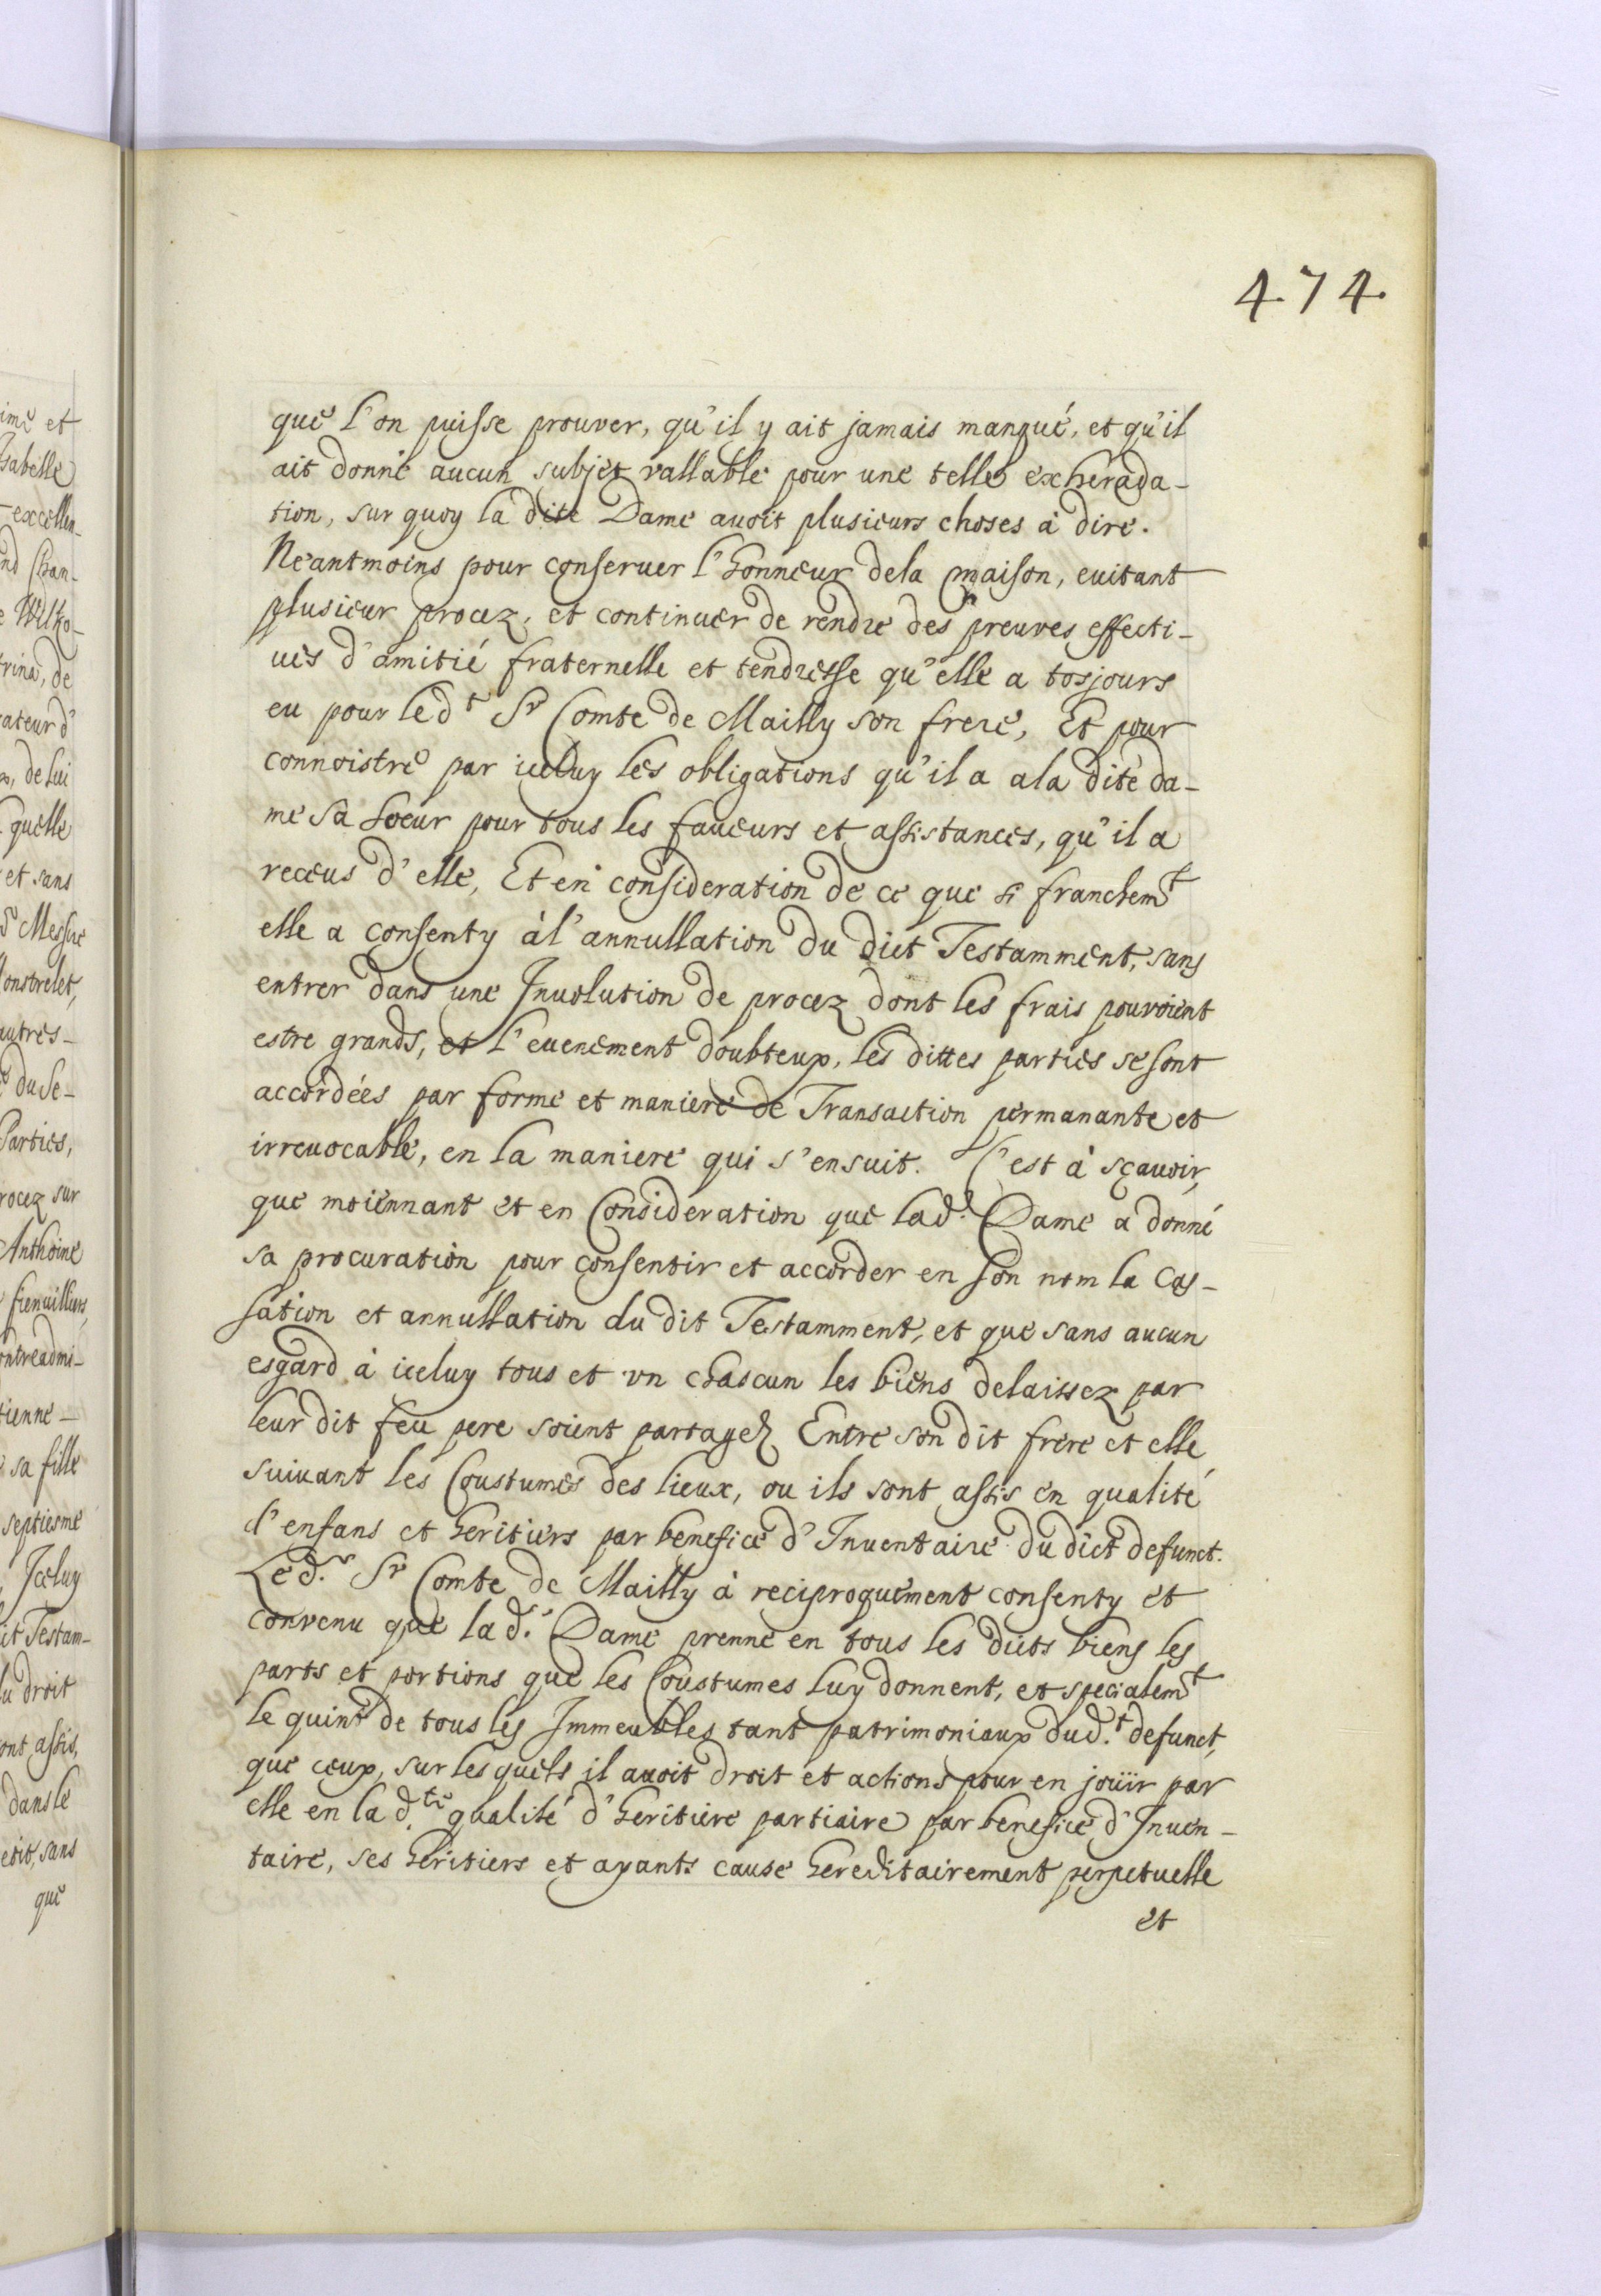 474.
que l'on puisse prouver, qu'il y ait jamais manqué, et qu'il
ait donné aucun subjet vallable pour une telle exhereda-
tion, sur quoy la dite Dame avoit plusieurs choses à dire.
Neantmoins pour conseruer l'honneur dela maison, euitant
plusieur procez, et continuer de rendre des preuves effecti-
ues d'amitié fraternelle et tendresse qu'elle a tosjours
eu pour led.t S.r Comte de Mailly son frere, Et pour
connoistre par iceluy les obligations qu'il a ala dite da-
me sa soeur pour tous les faueurs et assistances, qu'il a
receus d'elle, Et en consideration de ce que si franchem.t
elle a consenty à l'annullation du dict Testamment, sans
entrer dans une Inuolution de procez dont les frais pouvoient
estre grands, et l'euenement doubteux, les dittes parties se sont
accordées par forme et maniere de Transaction permanante et
irreuocable, en la maniere qui s'ensuit. C'est à sçauoir,
que moiennant et en Consideration que lad.e Dame a donné
sa procuration pour consentir et accorder en son nom la Cas-
sation et annullation du dit Testamment, et que sans aucun
esgard à iceluy tous et vn chascun les biens delaissez par
leur dit feu pere soient partagez Entre son dit frere et elle
suiuant les Coustumes des lieux, ou ils sont assis en qualité
d'enfans et heritiers par benefice d'Inuentaire du dict defunct.
Led.r S.r Comte de Mailly à reciproquement consenty et
convenu que lad.e Dame prenne en tous les dicts biens les
parts et portions que les Coustumes luy donnent, et specialem.t
le quint de tous les Immeubles tant patrimoniaux dud.t defunct,
que ceux, sur lesquels il auoit droit et actions pour en joüir par
elle en la d.te qualité d'heritiere partiaire par benefice d'Inuen-
taire, ses heritiers et ayants cause hereditairement perpetuelle
et
imé et
Isabelle
excellen-
Chan-
rina, de
ateur d'
de lui
quelle
et sans
Messire
onstrelet,
autres-
du Se-
Parties,
rocez sur
Anthoine
fienuilliers,
ontreadmi-
tienne-
sa fille
septiesme
Iceluy
it Testam-
u droit
ont assis,
dans le
sans
que